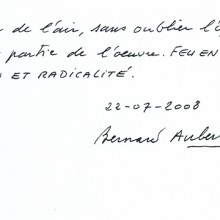 de l'air, sans oublier l'
partie de l'oeuvre. FEU EN
ET RADICALITÉ.
22-07-2008
Bernard Auber